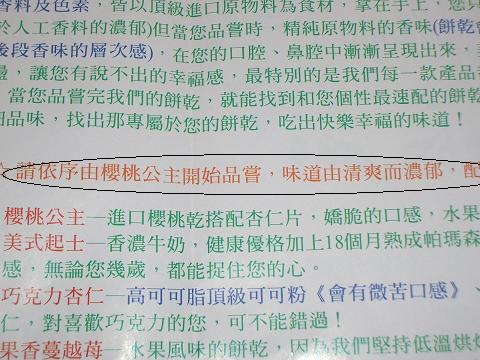 香料及色素，皆以頂級進口原物料為食材，拿在手上，您只
於人工香料的濃郁)但當您品嘗時，精純原物料的香味(餅乾
後段香味的層次感)，在您的口腔、鼻腔中漸漸呈現出來，
，讓您有說不出的幸福感，最特別的是我們每一款產品
當您品嘗完我們的餅乾，就能找到和您個性最速配的餅
品味，找出那專屬於您的餅乾，吃出快樂幸福的味道！
☆請依序由櫻桃公主開始品嘗，味道由清爽而濃郁，配
櫻桃公主─進口櫻桃乾搭配杏仁片，嬌脆的口感，水果
美式起士─香濃牛奶，健康優格加上18個月熟成帕瑪森
感，無論您幾歲，都能捉住您的心。
巧克力杏仁─高可可脂頂級可可粉《會有微苦口感》、
仁，對喜歡巧克力的您，可不能錯過！
果香蔓越莓─水果風味的餅乾，因為我們堅持低溫烘